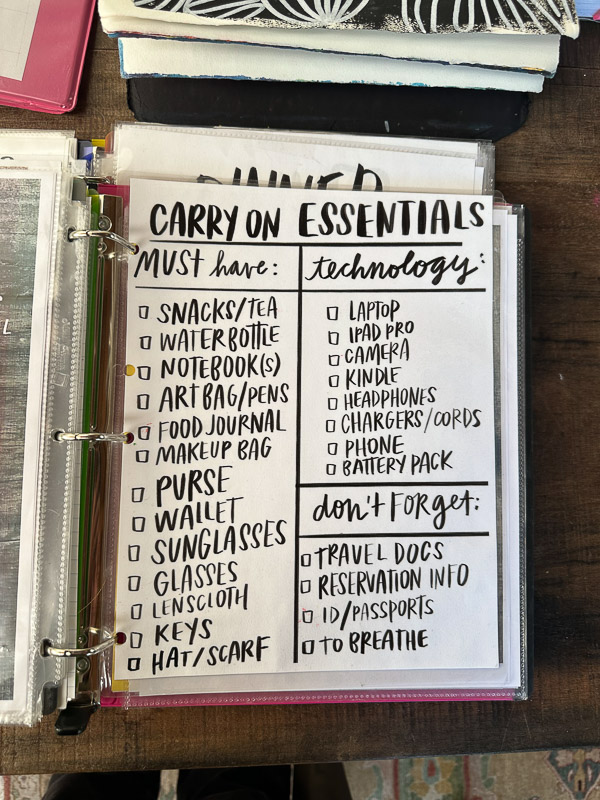 DINNER
CARRY ON ESSENTIALS
MUST have:
SNACKS/TEA
WATER BOTTLE
NOTEBOOK(S)
ART BAG/PENS
FOOD JOURNAL
MAKEUP BAG
PURSE
WALLET
SUNGLASSES
GLASSES
LENSCLOTH
KEYS
HAT/SCARF
technology:
LAPTOP
IPAD PRO
CAMERA
KINDLE
HEADPHONES
CHARGERS/CORDS
PHONE
BATTERY PACK
don't FORget:
TRAVEL DOCS
RESERVATION INFO
ID/PASSPORTS
TO BREATHE